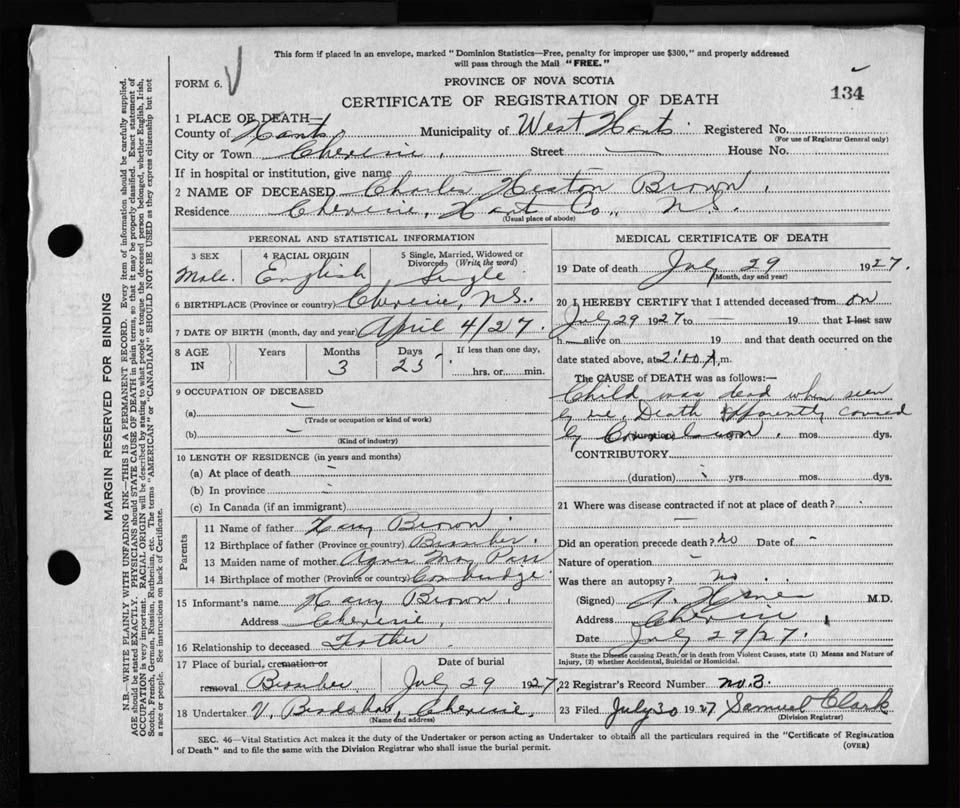 This form if placed in an envelope, marked "Dominion Statistics—Free, penalty for improper use $300," and properly addressed
will pass through the Mail "FREE."
FORM 6.
PROVINCE OF NOVA SCOTIA
134
CERTIFICATE OF REGISTRATION OF DEATH
1 PLACE OF DEATH—
County of Hants Municipality of West Hants Registered No.
(For use of Registrar General only)
City or Town Cheverie Street — House No.
If in hospital or institution, give name —
2 NAME OF DECEASED Charles Heston Brown
Residence Cheverie, Hants Co., N.S.
(Usual place of abode)
PERSONAL AND STATISTICAL INFORMATION
3 SEX 4 RACIAL ORIGIN 5 Single, Married, Widowed or
Divorced (Write the word)
Male. English Single
6 BIRTHPLACE (Province or country) Cheverie, N.S.
7 DATE OF BIRTH (month, day and year) April 4/27.
8 AGE Years Months Days If less than one day,
IN 3 25 hrs. or min.
9 OCCUPATION OF DECEASED
(a) —
(Trade or occupation or kind of work)
(b) —
(Kind of industry)
10 LENGTH OF RESIDENCE (in years and months)
(a) At place of death
(b) In province
(c) In Canada (if an immigrant)
Parents
11 Name of father Harry Brown
12 Birthplace of father (Province or country)
13 Maiden name of mother Agnes May
14 Birthplace of mother (Province or country)
15 Informant's name Harry Brown
Address Cheverie
16 Relationship to deceased Father
17 Place of burial, cremation or Date of burial
removal July 29 1927
18 Undertaker V. Bradshaw, Cheverie
(Name and address)
MEDICAL CERTIFICATE OF DEATH
19 Date of death July 29 1927.
(Month, day and year)
20 I HEREBY CERTIFY that I attended deceased from on
July 29 1927 to — 19 that I last saw
h— alive on 19 and that death occurred on the
date stated above, at 2:00 A.m.
The CAUSE OF DEATH was as follows:—
Child was dead when seen
by me. Death apparently caused
by Convulsion. (duration) mos. dys.
CONTRIBUTORY
(duration) yrs. mos. dys.
21 Where was disease contracted if not at place of death?
—
Did an operation precede death? no Date of —
Nature of operation —
Was there an autopsy? no
(Signed) A. M.D.
Address Cheverie
Date July 29/27.
State the Disease causing Death, or in death from Violent Causes, state (1) Means and Nature of
Injury, (2) whether Accidental, Suicidal or Homicidal.
22 Registrar's Record Number no. 3.
23 Filed July 30 1927 Samuel Clark
(Division Registrar)
SEC. 46—Vital Statistics Act makes it the duty of the Undertaker or person acting as Undertaker to obtain all the particulars required in the "Certificate of Registration
of Death" and to file the same with the Division Registrar who shall issue the burial permit.
(OVER)
MARGIN RESERVED FOR BINDING
N.B.—WRITE PLAINLY WITH UNFADING INK—THIS IS A PERMANENT RECORD. Every item of information should be carefully supplied.
AGE should be stated EXACTLY. PHYSICIANS should STATE CAUSE OF DEATH in plain terms, so that it may be properly classified. Exact statement of
OCCUPATION is very important. RACIAL ORIGIN will be described by stating to what people or tongue the deceased person belonged, whether English, Irish,
Scotch, French, German, Russian, Ruthenian, etc. The terms "AMERICAN" or "CANADIAN" SHOULD NOT BE USED as they express citizenship but not
a race or people. See instructions on back of Certificate.